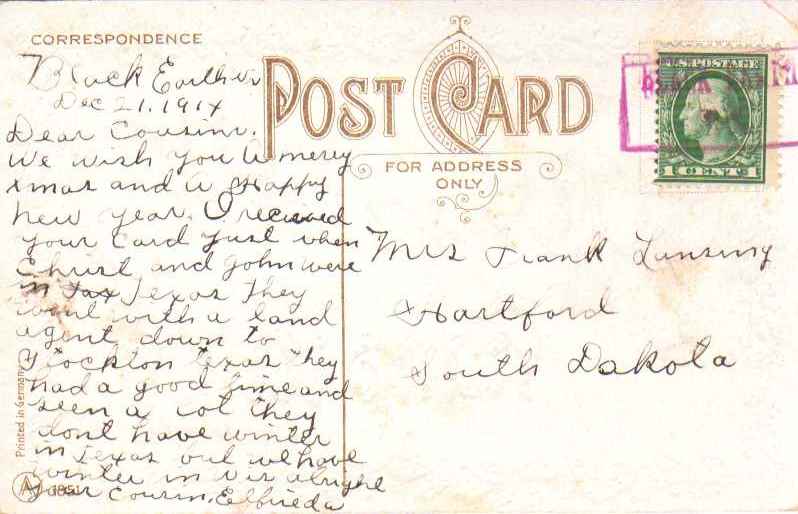 CORRESPONDENCE
POST CARD
FOR ADDRESS
ONLY
U.S. POSTAGE
1 CENTS 1
Black Earth Wis
Dec 21, 1914
Dear Cousins.
We wish you a merry
xmas and a Happy
new year. I received
your card just when
Christ and John were
in Tex Texas They
went with a land
agent down to
Stockton Texas They
had a good time and
seen a lot They
dont have winter
in Texas but we have
winter in Wis alright
your Cousin, Elfrieda
Mrs Frank Lansing
Hartford
South Dakota
Printed in Germany